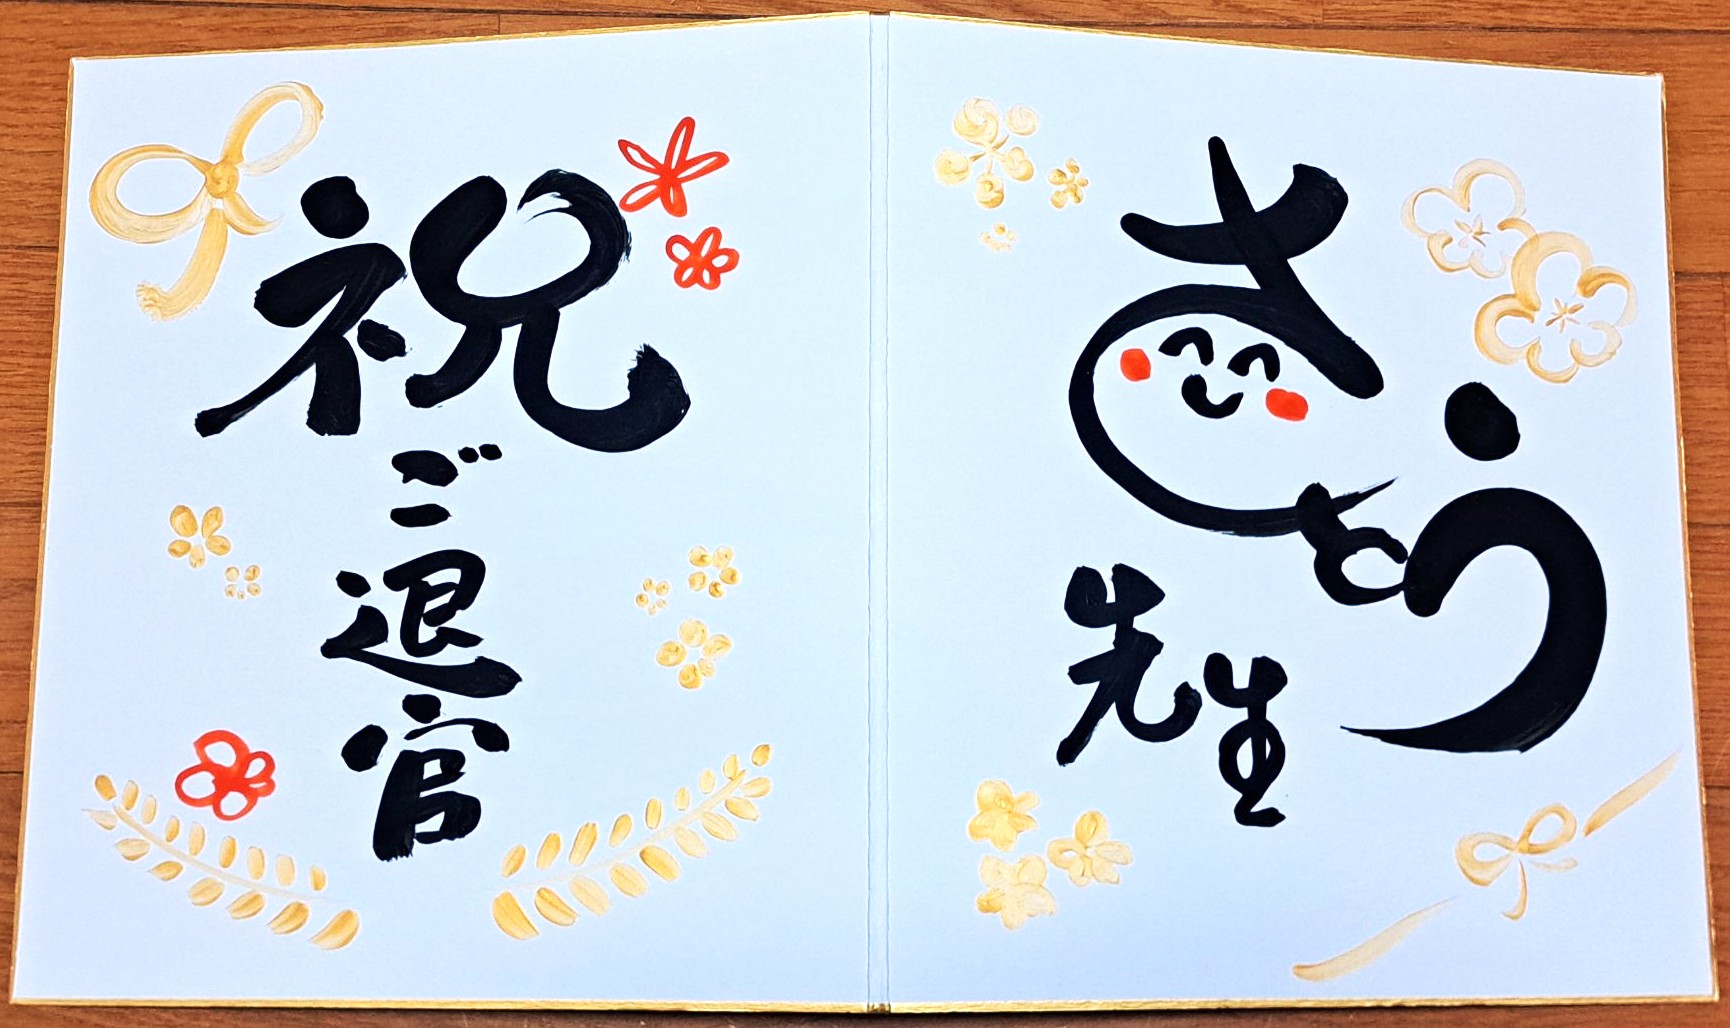 祝
ご退官
さとう
先生